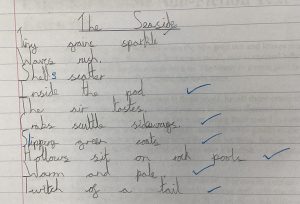 The Seaside
Tiny grains sparkle
Waves rush.
Shells scatter
Inside the pod
The air tastes.
Crabs scuttle sideways.
Slipping green coats
Hollows sit on rock pools
Warm and pale.
Twitch of a tail